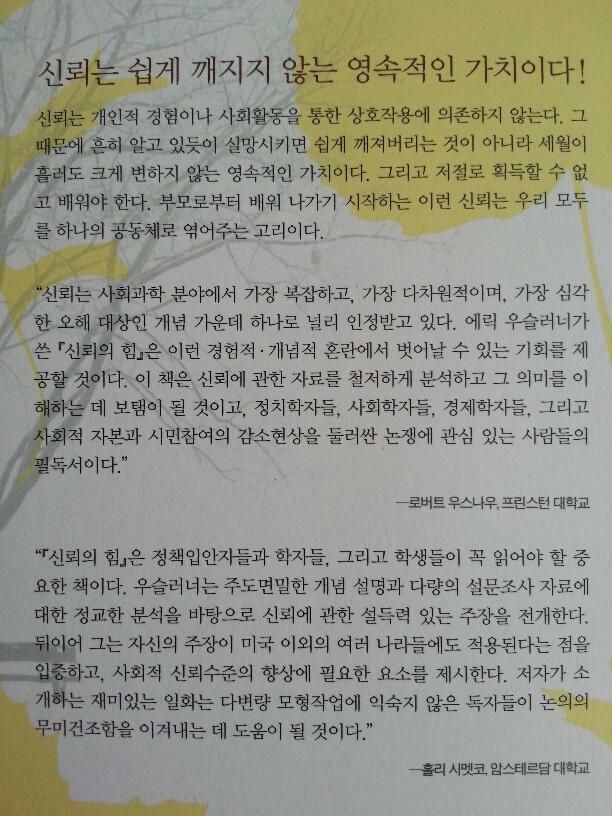 신뢰는 쉽게 깨지지 않는 영속적인 가치이다!
신뢰는 개인적 경험이나 사회활동을 통한 상호작용에 의존하지 않는다. 그
때문에 흔히 알고 있듯이 실망시키면 쉽게 깨져버리는 것이 아니라 세월이
흘러도 크게 변하지 않는 영속적인 가치이다. 그리고 저절로 획득할 수 없
고 배워야 한다. 부모로부터 배워 나가기 시작하는 이런 신뢰는 우리 모두
를 하나의 공동체로 엮어주는 고리이다.
“신뢰는 사회과학 분야에서 가장 복잡하고, 가장 다차원적이며, 가장 심각
한 오해 대상인 개념 가운데 하나로 널리 인정받고 있다. 에릭 우슬러너가
쓴 『신뢰의 힘』은 이런 경험적·개념적 혼란에서 벗어날 수 있는 기회를 제
공할 것이다. 이 책은 신뢰에 관한 자료를 철저하게 분석하고 그 의미를 이
해하는 데 보탬이 될 것이고, 정치학자들, 사회학자들, 경제학자들, 그리고
사회적 자본과 시민참여의 감소현상을 둘러싼 논쟁에 관심 있는 사람들의
필독서이다.”
―로버트 우스나우, 프린스턴 대학교
“『신뢰의 힘』은 정책입안자들과 학자들, 그리고 학생들이 꼭 읽어야 할 중
요한 책이다. 우슬러너는 주도면밀한 개념 설명과 다량의 설문조사 자료에
대한 정교한 분석을 바탕으로 신뢰에 관한 설득력 있는 주장을 전개한다.
뒤이어 그는 자신의 주장이 미국 이외의 여러 나라들에도 적용된다는 점을
입증하고, 사회적 신뢰수준의 향상에 필요한 요소를 제시한다. 저자가 소
개하는 재미있는 일화는 다변량 모형작업에 익숙지 않은 독자들이 논의의
무미건조함을 이겨내는 데 도움이 될 것이다.”
―홀리 시멧코, 암스테르담 대학교